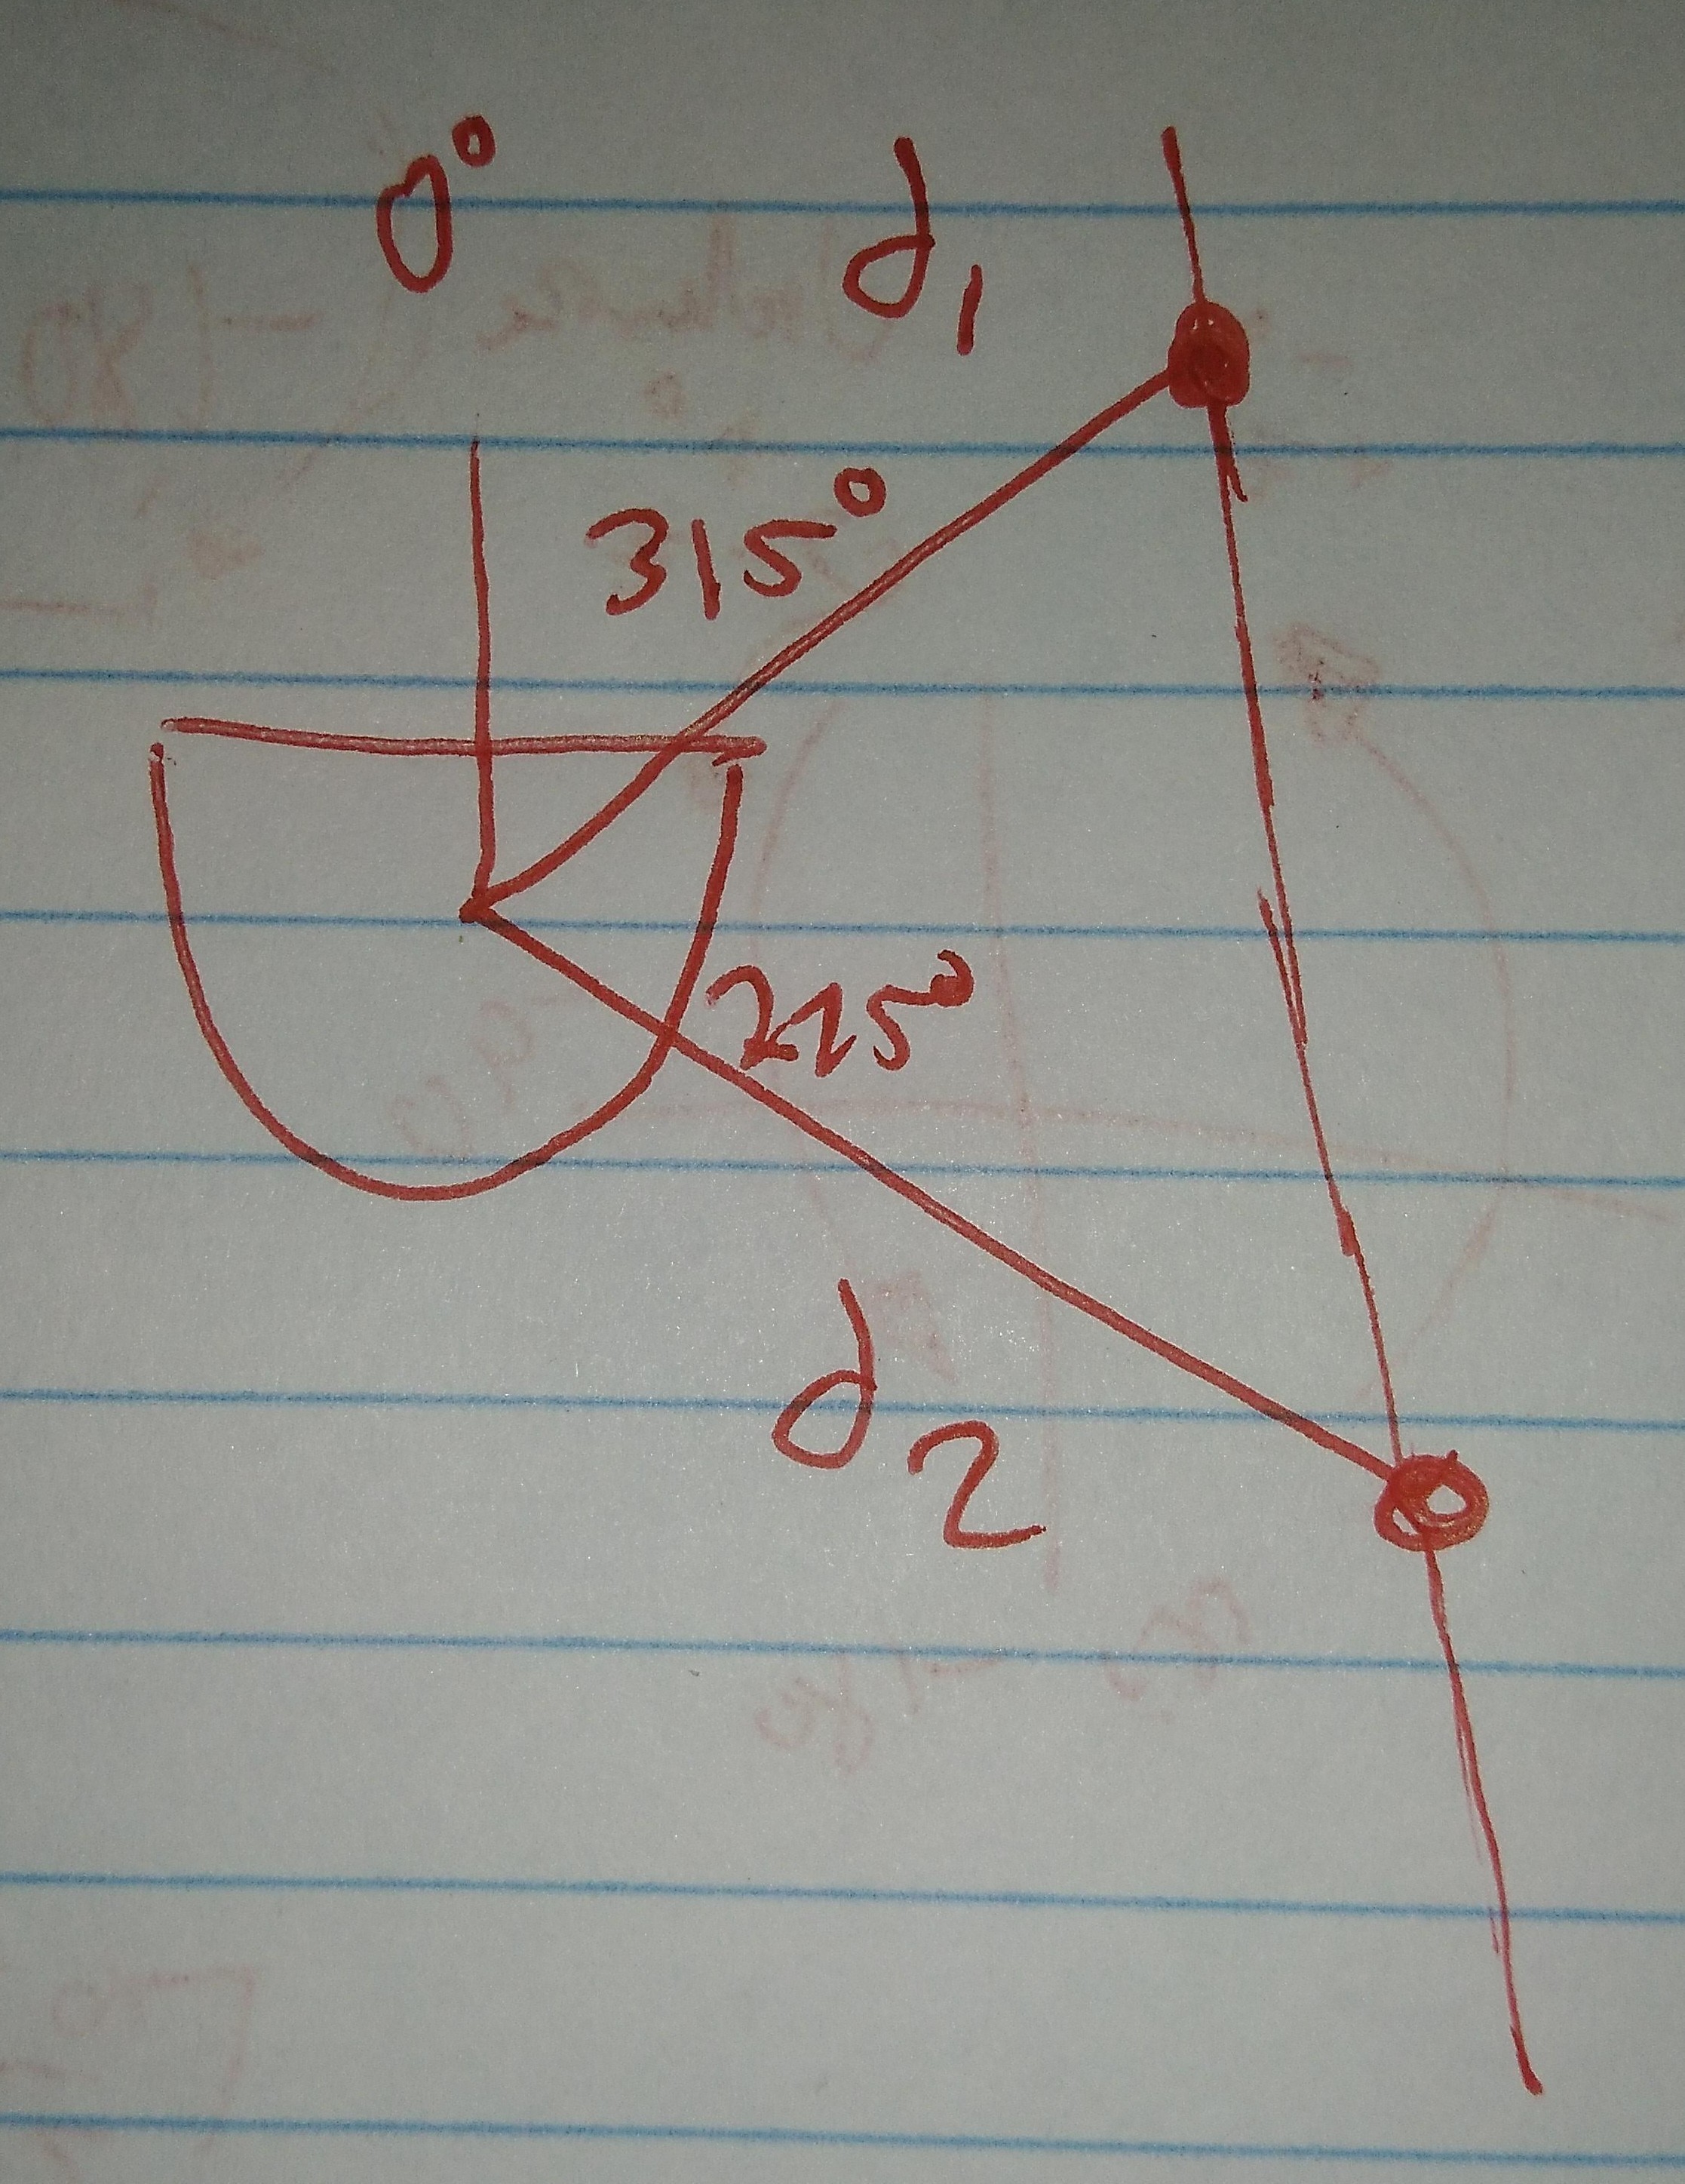 0° d₁
315°
225°
d₂